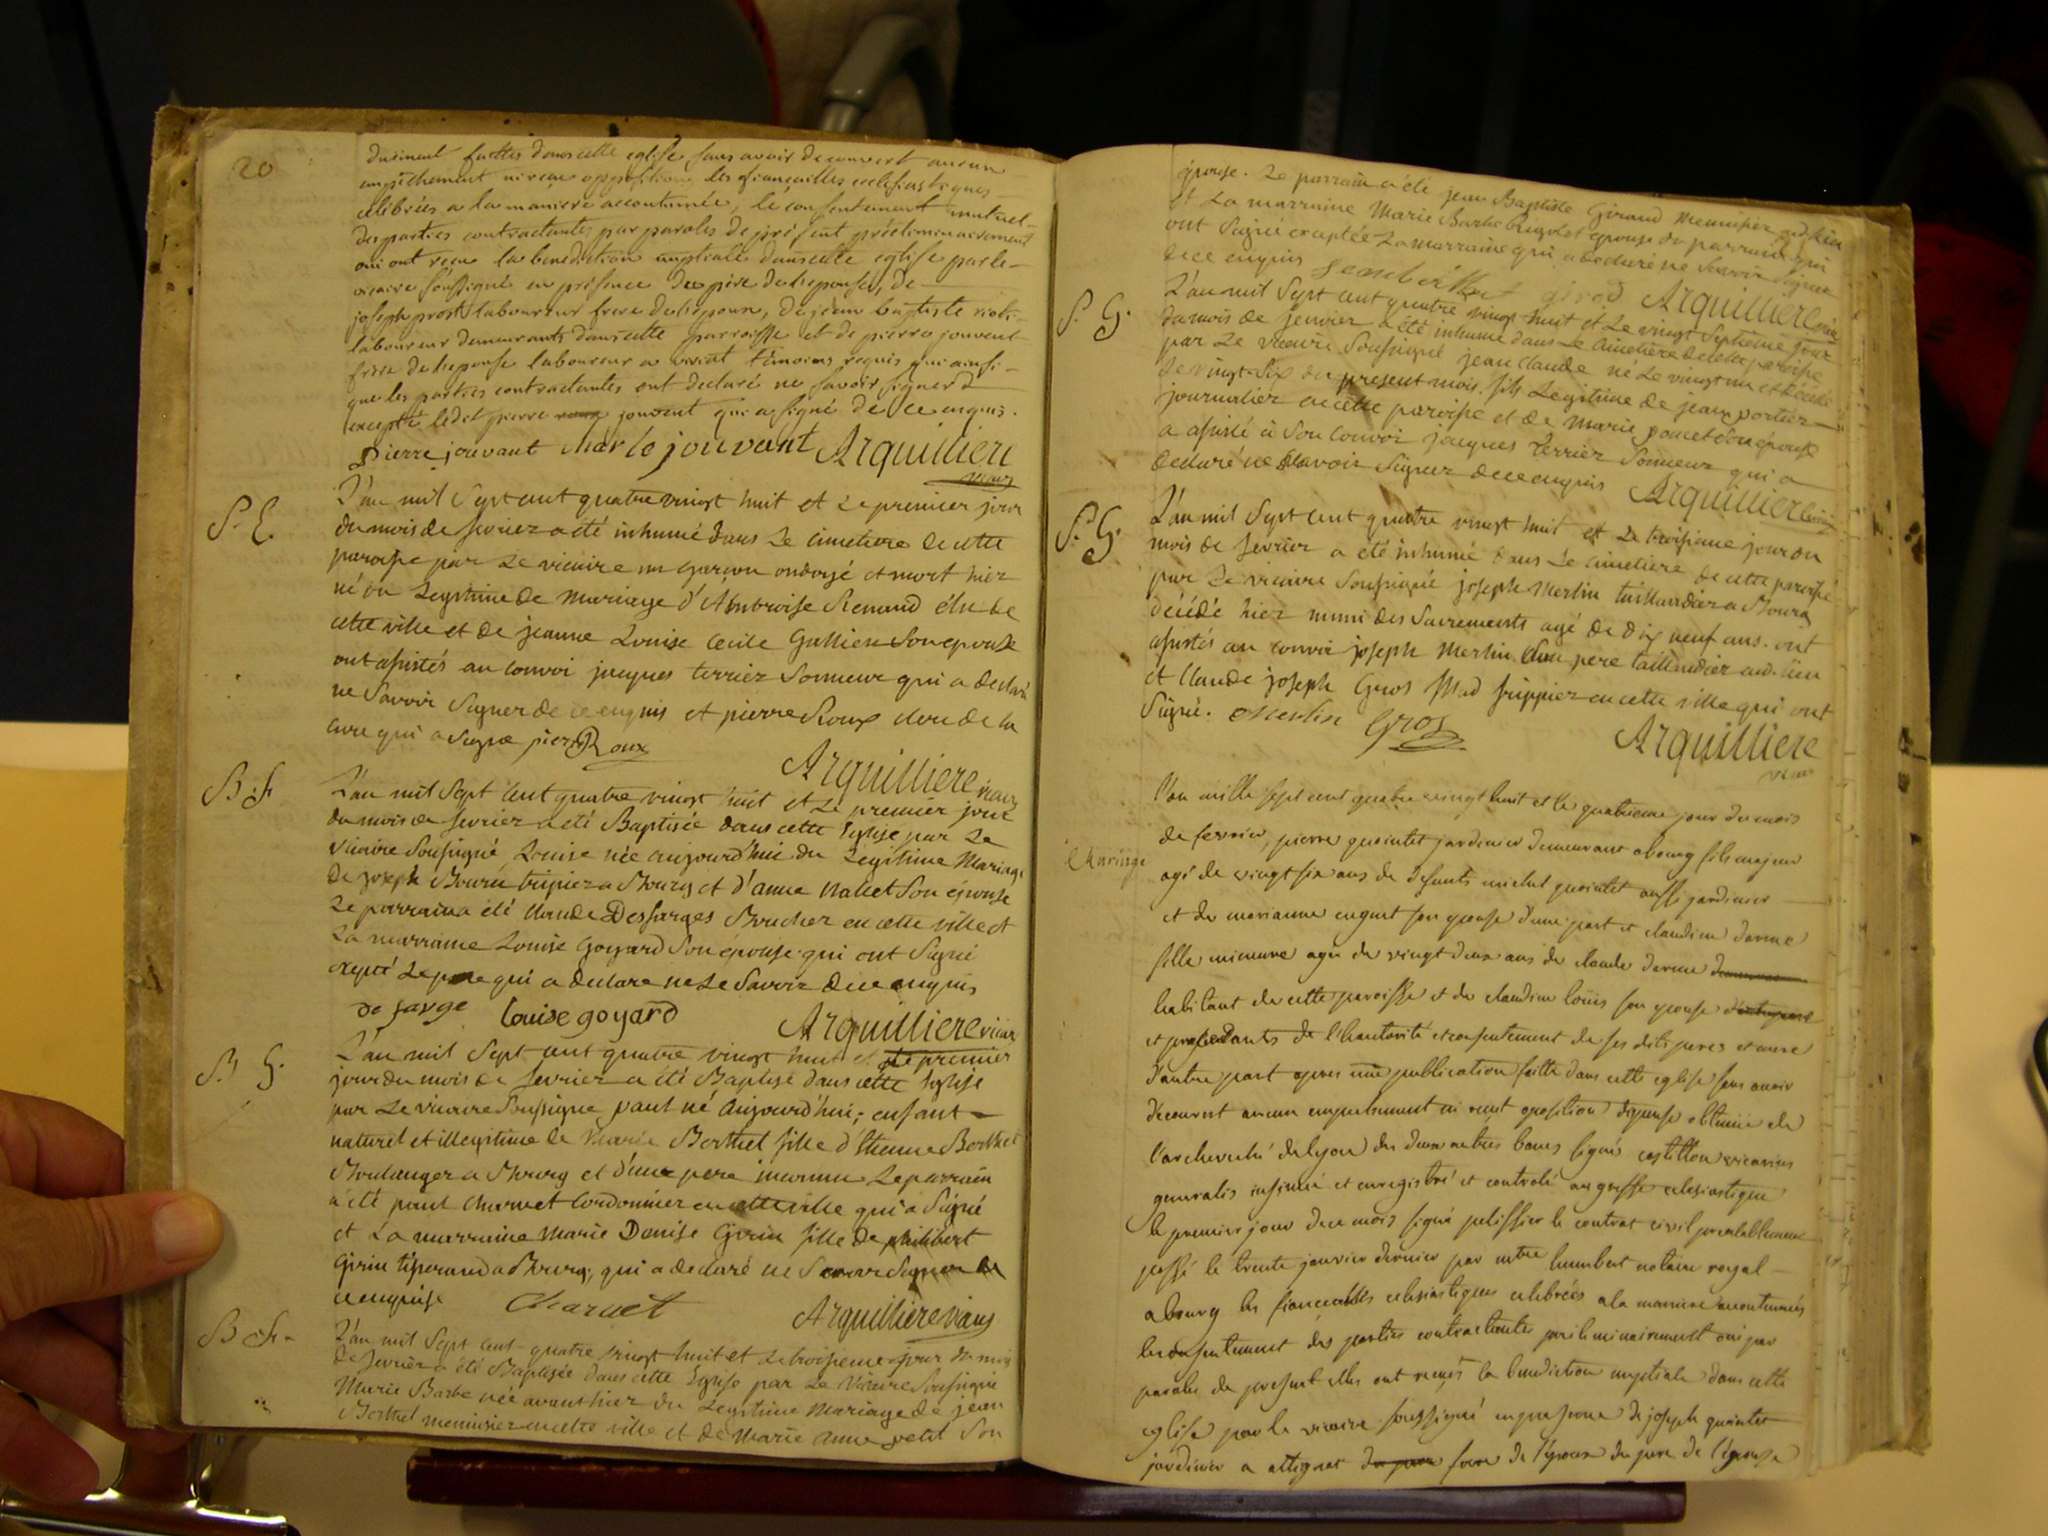 20
duement faittes dans cette eglise sans avoir decouvert aucun
empechement ni reçu opposition, les fiançailles ecclesiastiques
celebrées a la maniere accoutumée, le consentement mutuel
des parties contractantes par paroles de présent préeliminairement
oui ont reçu la benediction nuptialle dans cette eglise par le
vicaire soussigné en présence du père de l'epouse, de
joseph prost laboureur frere de l'epoux, de jean baptiste
laboureur demeurants dans cette parroisse et de pierre jouvent
frere de l'epouse laboureur a temoins requis qui ainsi
que les parties contractantes ont declaré ne savoir signer
excepté ledit pierre jouvent qui a signé de ce enquis.
Pierre jouvant jouvant Arquilliere
vicair
S. E.
L'an mil Sept cent quatre vingt huit et Le premier jour
du mois de fevrier a été inhumé dans Le cimetiere de cette
paroisse par Le vicaire un garçon ondoyé et mort hier
né du Legitime de Mariage d'Ambroise Renaud élu de
cette ville et de jeanne Louise Cecile Gallien Son epouse
ont assistés au convoi jacques terrier Sonneur qui a declaré
ne Savoir Signer de ce enquis et pierre Roux clerc de la
cure qui a Signé pier Roux
Arquilliere vicair
B. f.
L'an mil Sept Cent quatre vingt huit et Le premier jour
du mois de fevrier a été Baptisée dans cette Eglise par Le
vicaire Soussigné Louise née aujourd'hui du Legitime Mariage
de joseph tripier a Bourg et d'anne Son épouse
Le parrain a été Claude Desfarges Boucher en cette ville et
La marraine Louise Goyard Son épouse qui ont Signé
excepté Le pere qui a declare ne Le Savoir de ce enquis
de farge Louise goyard
Arquilliere vicair
B. G.
L'an mil Sept cent quatre vingt huit et Le premier
jour du mois de fevrier a été Baptisé dans cette Eglise
par Le vicaire Soussigné paul né Aujourd'hui; enfant
naturel et illegitime de Marie Berthet fille d'Etienne Berthet
Boulanger a Bourg et d'une pere inconnu Le parrain
a été paul Charnet Cordonnier en cette ville qui a Signé
et La marraine Marie Denise Girin fille de philibert
Girin tisserand a Bourg, qui a declaré ne Savoir Signer de
ce enquise Charnet
Arquilliere vicair
B f.
L'an mil Sept cent quatre vingt huit et Le troisieme jour du mois
de fevrier a été Baptisée dans cette Eglise par Le Vicaire Soussigné
Marie Barbe née avant hier du Legitime Mariage de jean
Berthet menuisier en cette ville et de Marie Anne petit Son
épouse. Le parrain a été jean Baptiste Giraud Menuisier
et La marraine Marie Barbe epouse du parrain qui
ont Signé exceptée La marraine qui a declaré ne Savoir Signer
de ce enquis Arquilliere
S. G.
L'an mil Sept cent quatre vingt huit et Le vingt Septieme jour
du mois de Janvier a été inhumé dans Le Cimetiere de cette paroisse
par Le Vicaire Soussigné jean Claude né Le vingt un et décédé
Le vingt Six du present mois. fils Legitime de jean portier
journalier en cette paroisse et de Marie poncet Son épouse
a assisté à Son Convoi jacques Terrier Sonneur qui a
declaré ne Savoir Signer de ce enquis Arquilliere vicair
S. G.
L'an mil Sept cent quatre vingt huit et Le troisieme jour du
mois de fevrier a été inhumé dans Le Cimetiere de cette paroisse
par Le vicaire Soussigné joseph Merlin taillandier a Bourg
décédé hier muni des Sacrements agé de dix neuf ans. ont
assistés au convoi joseph Merlin Son pere taillandier aud. Lieu
et Claude joseph Gros Mad frippier en cette ville qui ont
Signé. Merlin Gros
Arquilliere
vicair
Mariage
l'an mille sept cent quatre vingt huit et le quatrieme jour du mois
de fevrier, pierre quointet jardinier demeurant a bourg fils majeur
agé de vingt six ans de defunts michel quointet aussi jardinier
et de marianne son epouse d'une part et claudine darme
fille mineure agée de vingt deux ans de claude darme
habitant de cette paroisse et de claudine loüis son epouse
et procedants de l'hautorité et consentement de ses dits peres et mere
d'autre part apres une publication faitte dans cette eglise sans avoir
decouvert aucun empechement ni reçut oposition dispense obtenüe de
l'archeveché de lyon des deux autres bans signé castillon vicarius
generalis insinué et enregistré et controlé au greffe eclesiastique
le premier jour de ce mois signé pelissier le contrat civil prealablement
passé le trente janvier dernier par mtre humbert notaire royal
a bourg les fiancailles eclesiastiques celebrées a la maniere accoutumée
le consentement des parties contractantes preliminairement oui par
paroles de present elles ont reçues la benediction nuptiale dans cette
eglise par le vicaire soussigné en presence de joseph quointet
jardinier a attignat du pere frere de l'epoux du pere de l'epouse